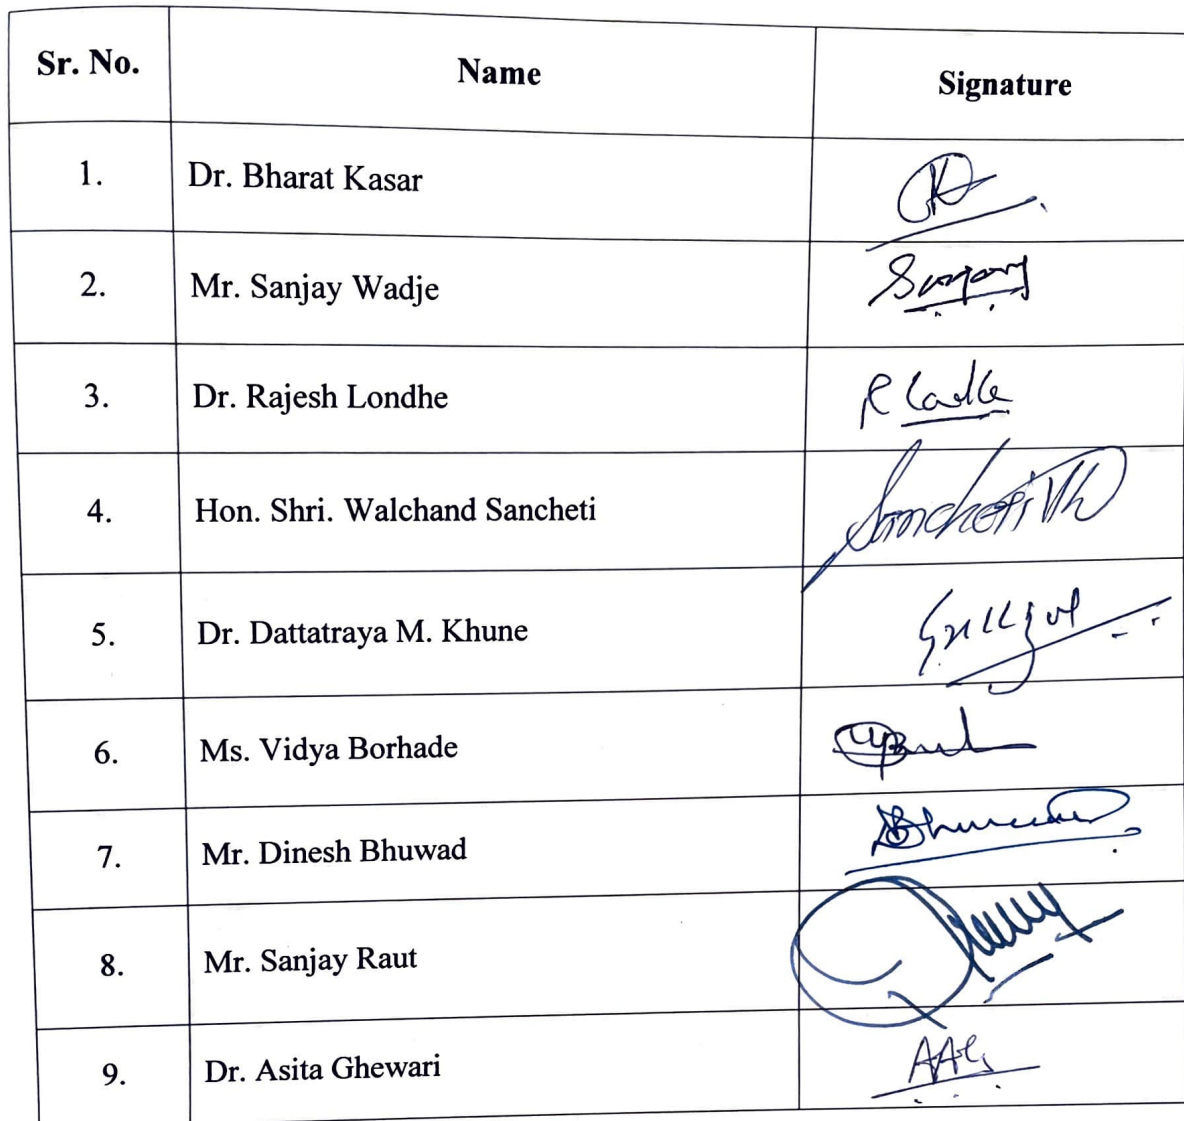 Sr. No. Name Signature
1. Dr. Bharat Kasar
2. Mr. Sanjay Wadje
3. Dr. Rajesh Londhe
4. Hon. Shri. Walchand Sancheti Sancheti
5. Dr. Dattatraya M. Khune
6. Ms. Vidya Borhade
7. Mr. Dinesh Bhuwad
8. Mr. Sanjay Raut
9. Dr. Asita Ghewari